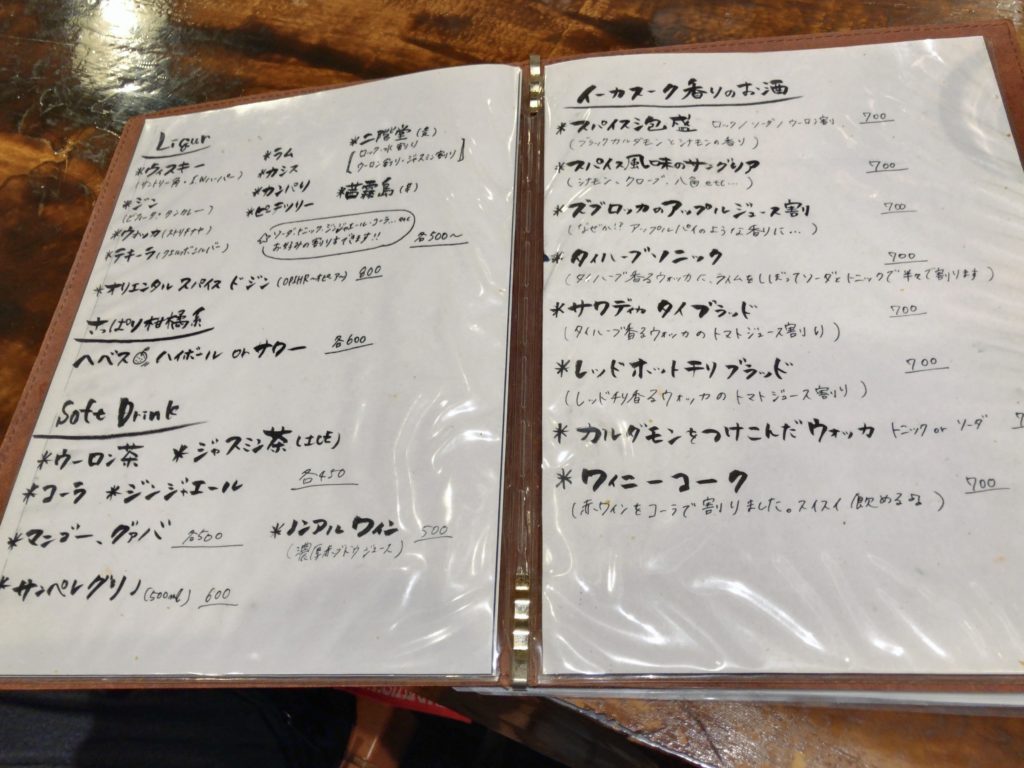 Ligur
*ウィスキー
(サントリー角・I.W.ハーパー)
*ジン
(ビーフィータータンカレー)
*ウォッカ(ストリチナヤ)
*テキーラ(クエルボシルバー)
*ラム
*カシス
*カンパリ
*ピーチツリー
*二階堂(麦)
ロック・水割り
ウーロン割り・ジャスミン割り
*茜霧島(芋)
☆ソーダ、トニック、ジンジャエール、コーラ…etc
お好みの割りもできます!!
各500〜
*オリエンタル スパイス ド ジン 800
さっぱり柑橘系
ヘベス ハイボール or サワー 各600
Sofe Drink
*ウーロン茶 *ジャスミン茶(ICE)
*コーラ *ジンジャエール 各450
*マンゴー、グァバ 各500
*ノンアルワイン 500
(濃厚赤ブドウジュース)
*サンペレグリノ(500ml) 600
イーカスーク香りのお酒
*スパイス泡盛 ロック/ソーダ/ウーロン割り 700
(ブラックカルダモンとシナモンの香り)
*スパイス風味のサングリア 700
(シナモン、クローブ、八角 etc...)
*ズブロッカのアップルジュース割り 700
(なぜか!? アップルパイのような香りに…)
*タイハーブソニック 700
(タイハーブ香るウォッカに、ライムをしぼってソーダとトニックで半々で割ります)
*サワディカ タイ ブラッド 700
(タイハーブ香るウォッカのトマトジュース割り)
*レッドホットチリ ブラッド 700
(レッドチリ香るウォッカのトマトジュース割り)
*カルダモンをつけこんだウォッカ トニック or ソーダ 7
*ワイニーコーク 700
(赤ワインをコーラで割りました。スイスイ飲めるよ)